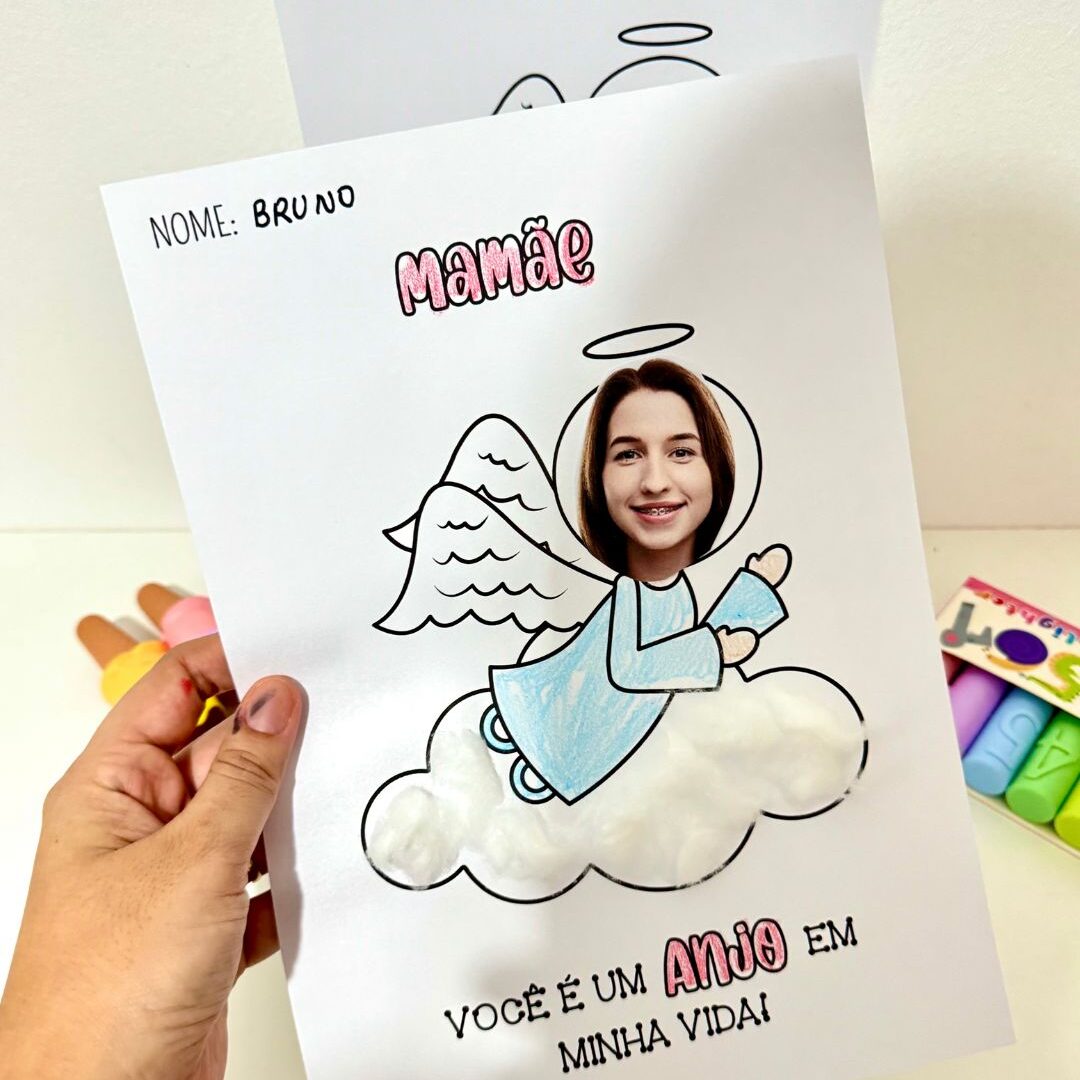 NOME: BRUNO
MAMÃE
VOCÊ É UM ANJO EM
MINHA VIDA!